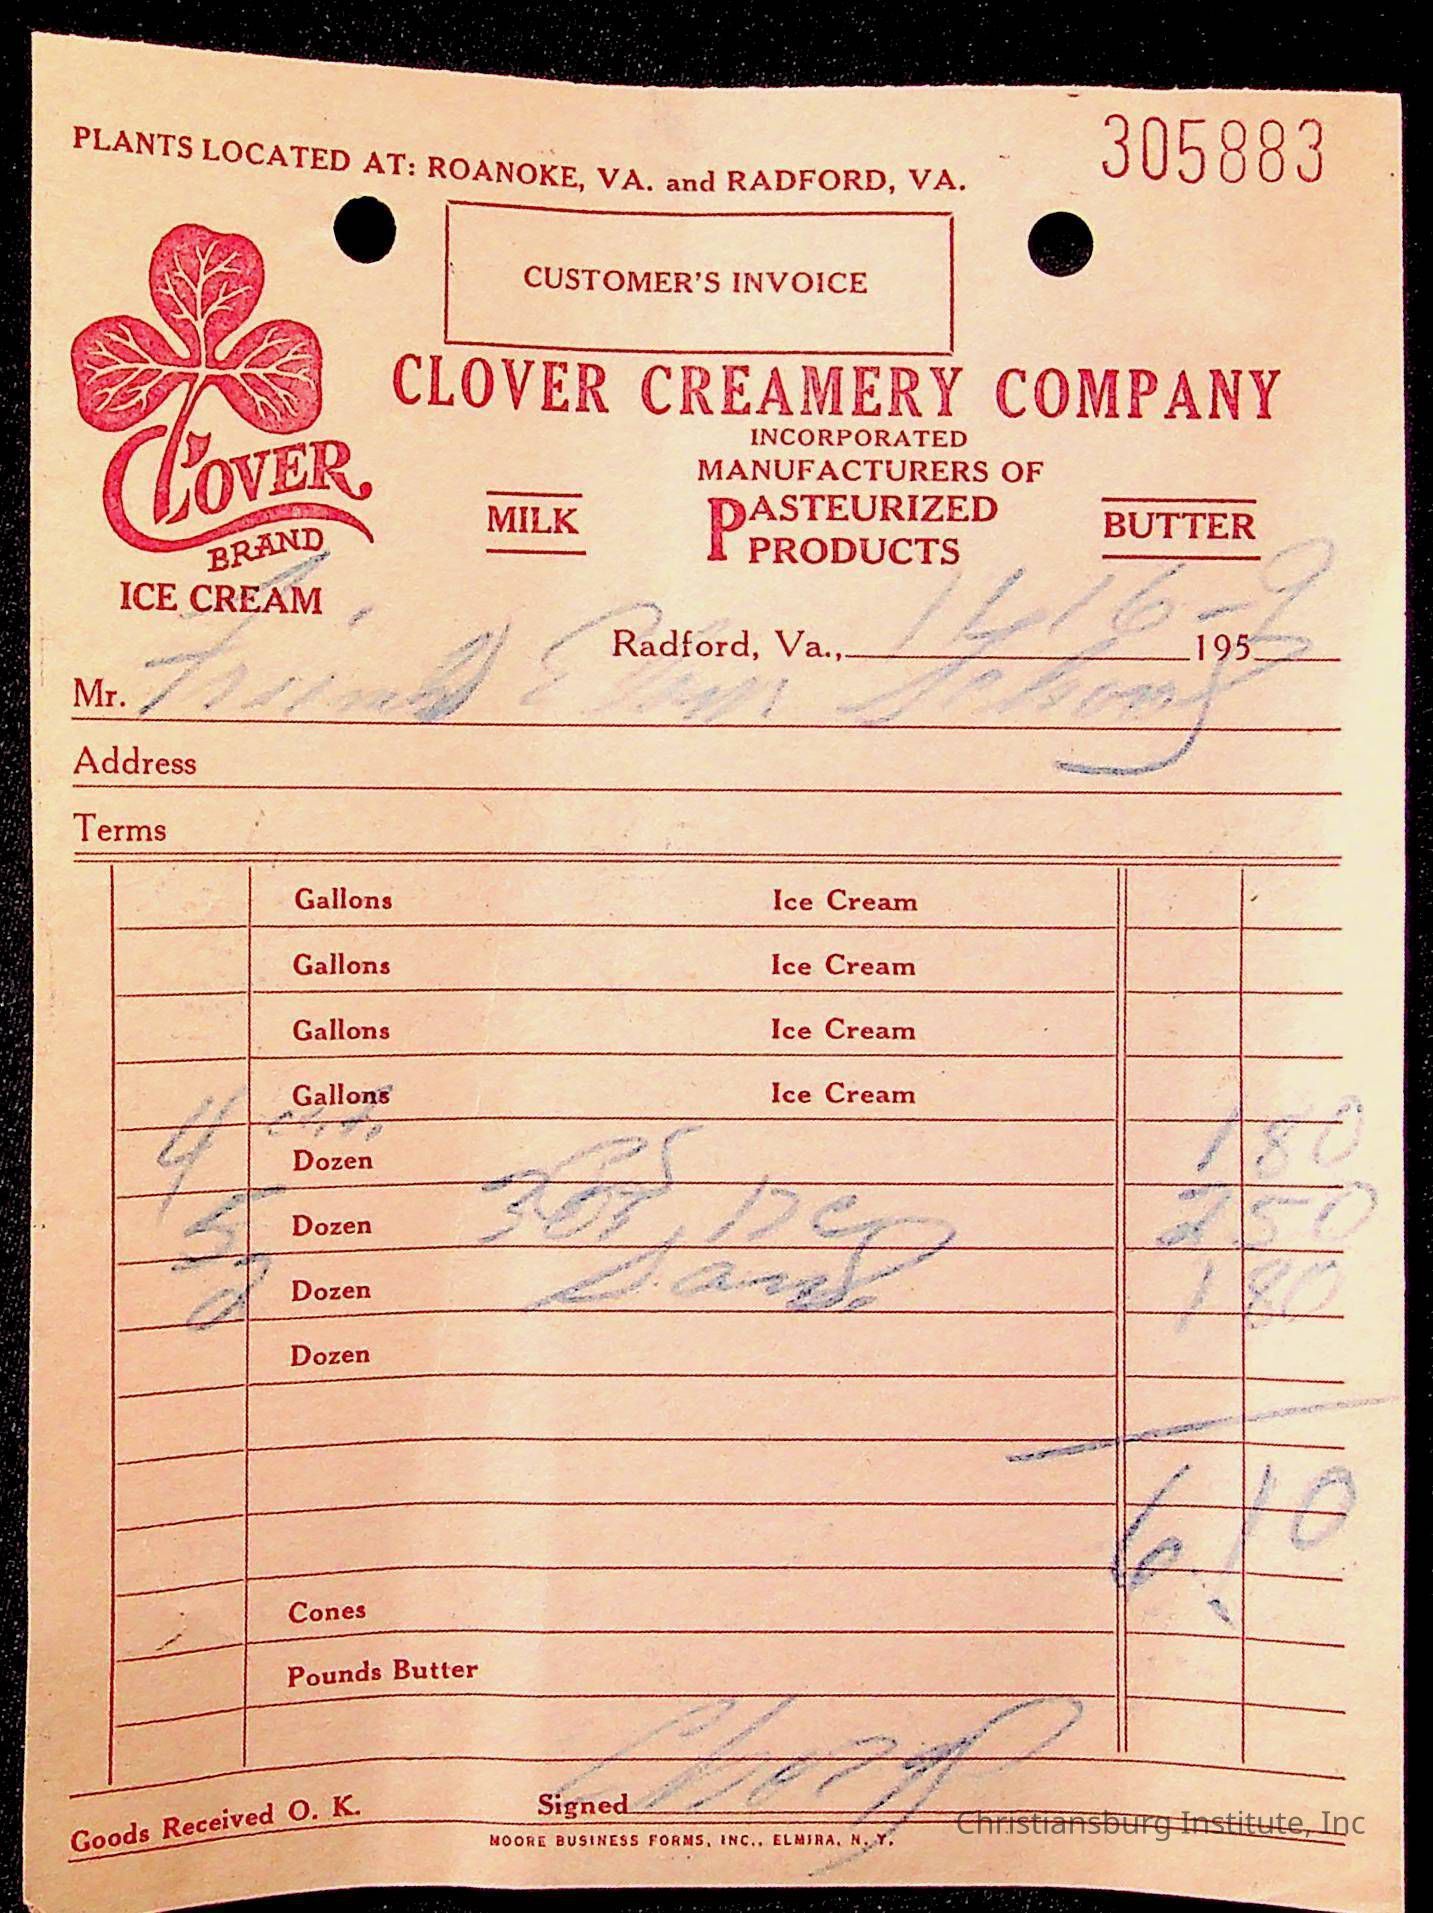 305883
PLANTS LOCATED AT: ROANOKE, VA. and RADFORD, VA.
CUSTOMER'S INVOICE
CLOVER CREAMERY COMPANY
INCORPORATED
MANUFACTURERS OF
CLOVER
BRAND
ICE CREAM
MILK
PASTEURIZED
PRODUCTS
BUTTER
Radford, Va., 195
Mr.
Address
Terms
Gallons Ice Cream
Gallons Ice Cream
Gallons Ice Cream
Gallons Ice Cream
4 Dozen 1 80
5 Dozen 2 50
2 Dozen 1 80
Dozen
6.10
Cones
Pounds Butter
Goods Received O. K. Signed
MOORE BUSINESS FORMS, INC., ELMIRA, N. Y.
Christiansburg Institute, Inc